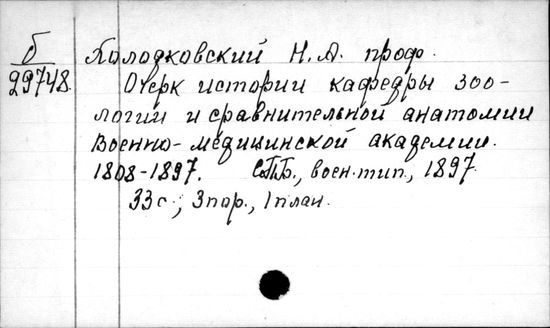 б Холодковский Н.А. проф.
29748. Очерк истории кафедры зоо-
логии и сравнительной анатомии
Военно-медицинской академии.
1808-1897. СПБ., воен.тип., 1897.
33с., 3пор., 1план.